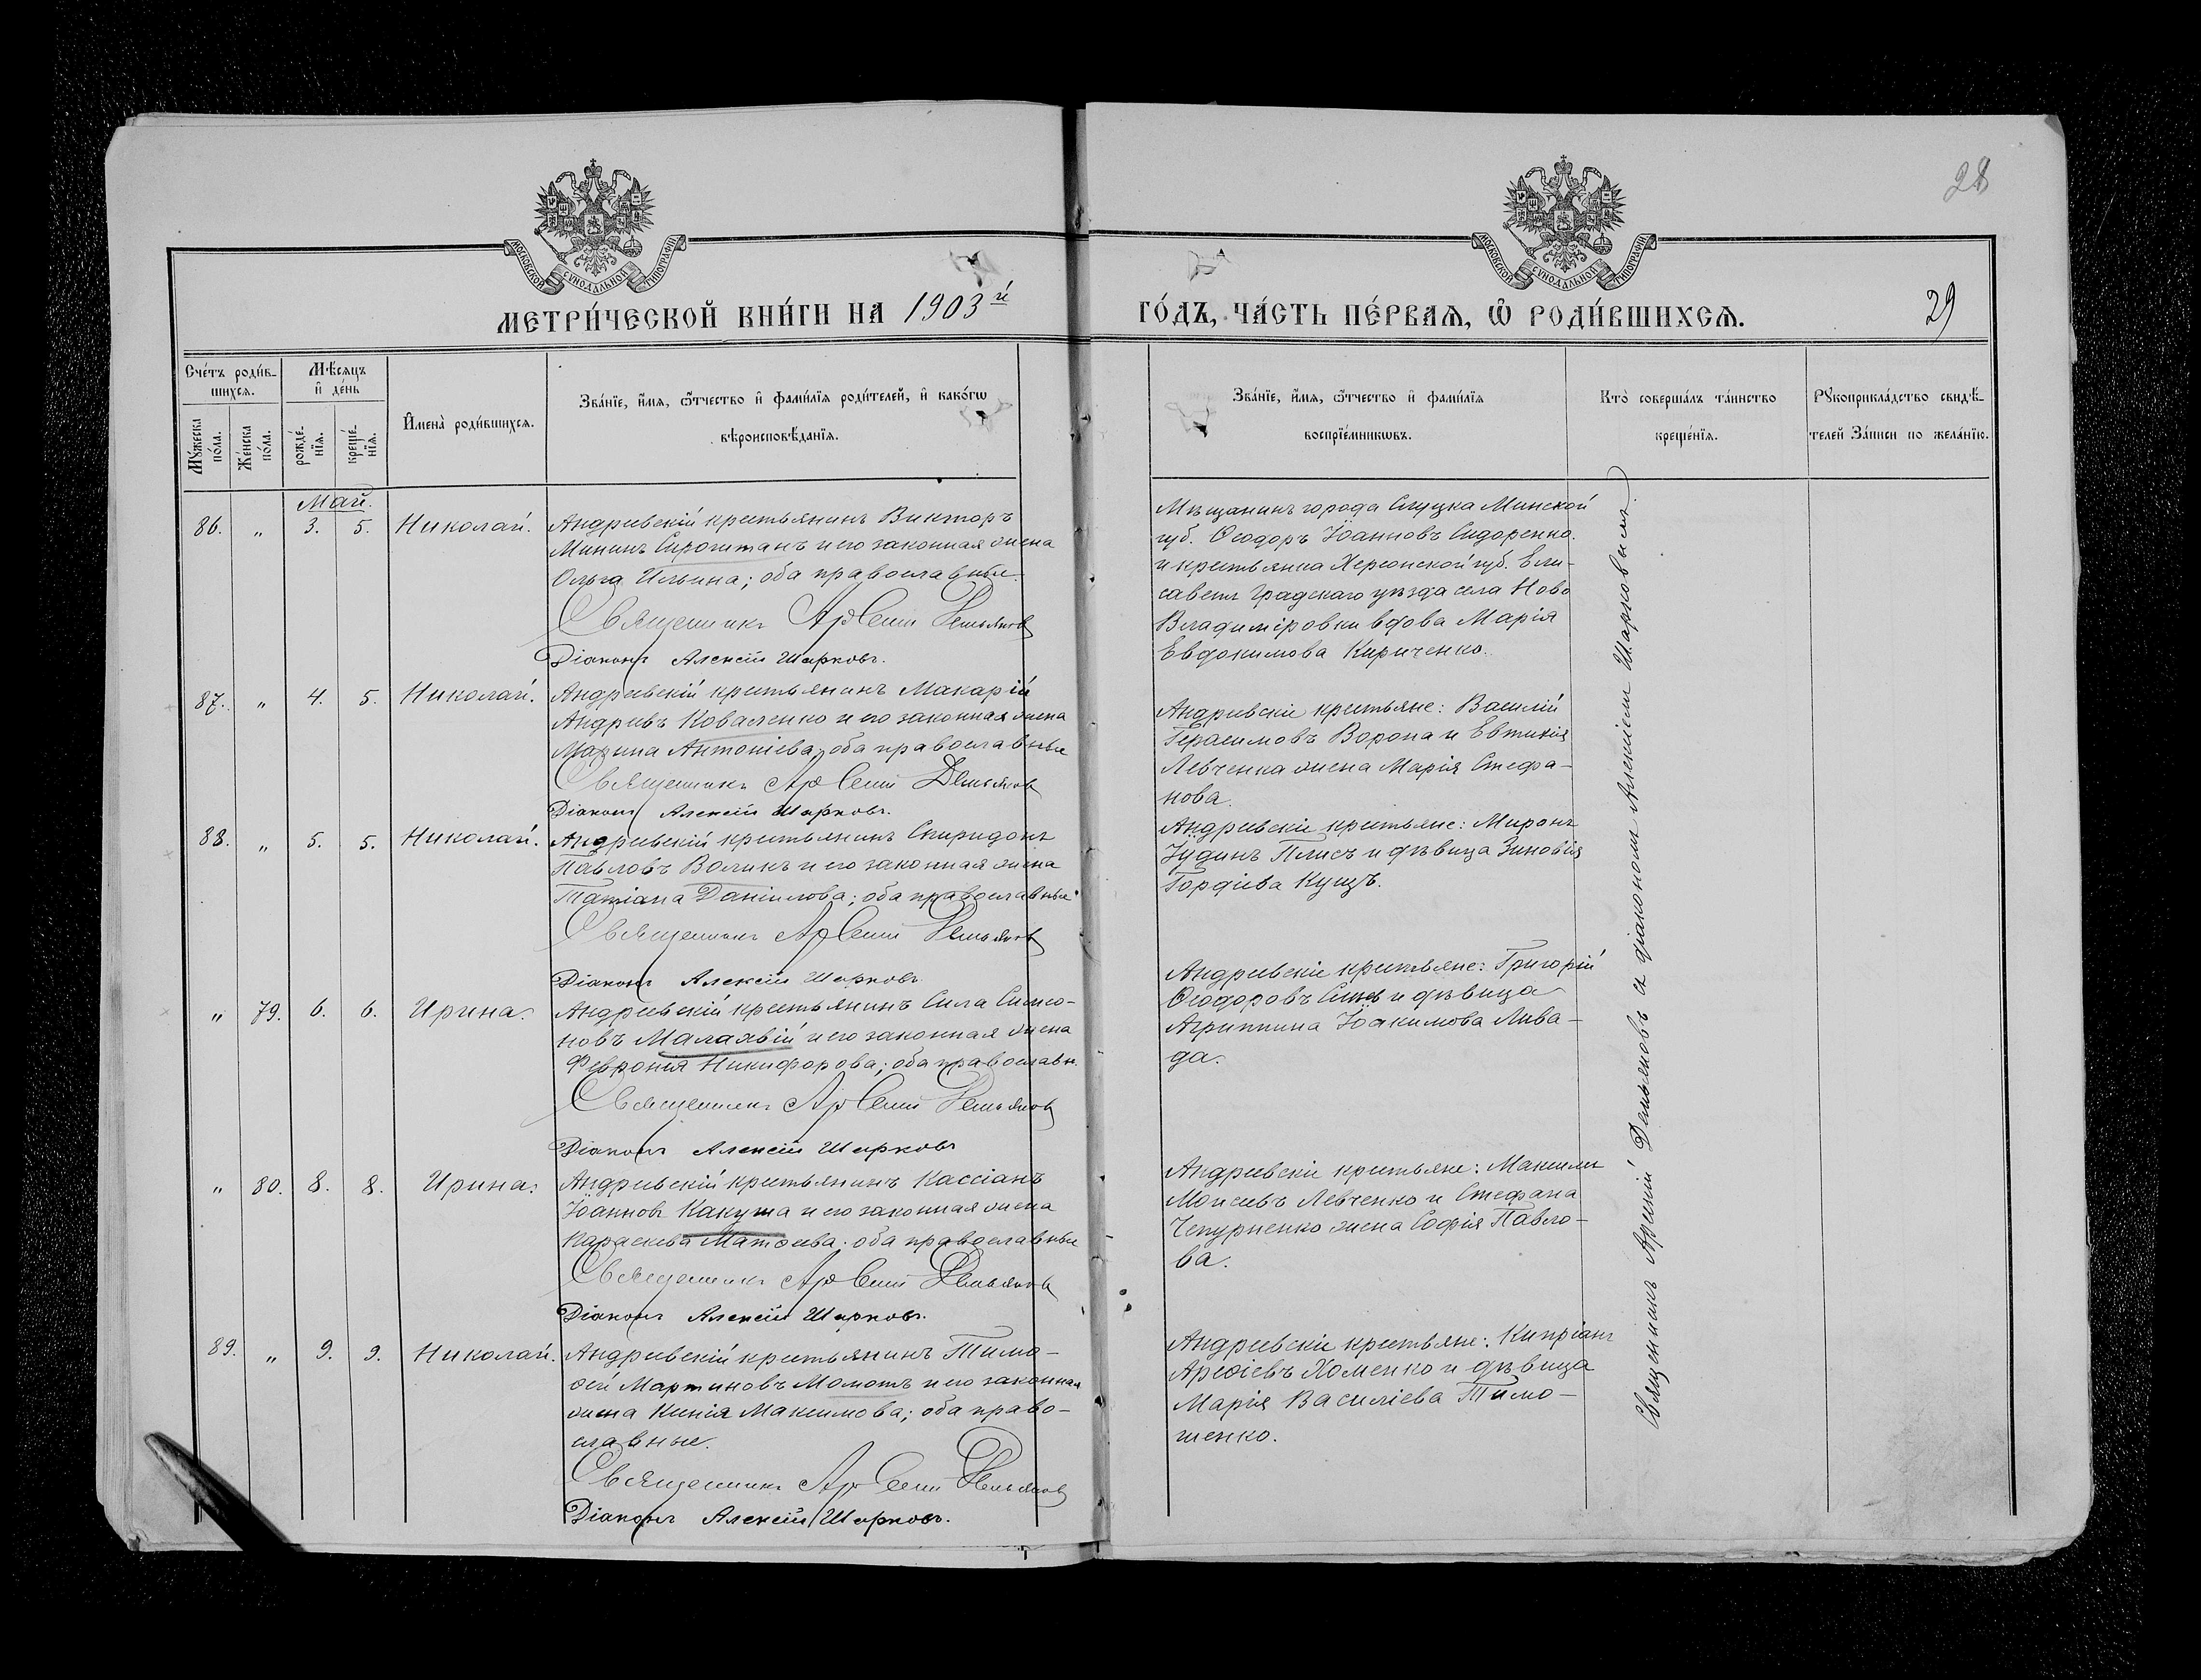 28
МОСКОВСКОЙ СУНОДАЛЬНОЙ ТИПОГРАФІИ
МОСКОВСКОЙ СУНОДАЛЬНОЙ ТИПОГРАФІИ
МЕТРИ́ЧЕСКОЙ КНИ́ГИ НА 1903й
ГО́ДЪ, ЧА́СТЬ ПЕ́РВАѦ, Ѡ҆ РОДИ́ВШИХСѦ.
29
Сче́тъ роди́в-
шихсѧ.
Мѣ́сѧцъ
и҆ де́нь
Мꙋ́жеска по́ла.
Же́нска по́ла.
рожде́нїѧ.
креще́нїѧ.
И҆мена̀ роди́вшихсѧ.
Зва́нїе, и҆́мѧ, ѻ҆́тчество и҆ фами́лїѧ роди́телей, и҆ како́гѡ
вѣроисповѣ́данїѧ.
Зва́нїе, и҆́мѧ, ѻ҆́тчество и҆ фами́лїѧ
воспрїе́мникѡвъ.
Кто̀ соверша́лъ та́инство
креще́нїѧ.
Рꙋкоприкла́дство свидѣ́-
телей За́писи по жела́нїю.
Май.
86. „ 3. 5. Николай. Андреевскій крестьянинъ Викторъ
Мининъ и его законная жена
Ольга Ильина; оба православные.
Священникъ Арсеній Демьянов
Діаконъ Алексій Шарковъ.
Мѣщанинъ города Слуцка Минской
губ. Ѳеодоръ Іоанновъ Сидоренко
и крестьянка Херсонской губ. Ели-
саветградскаго уѣзда села Ново
Владиміровки вдова Марія
Евдокимова Кириченко.
87. „ 4. 5. Николай. Андреевскій крестьянинъ Макарій
Андреевъ Коваленко и его законная жена
Марина Антоніева; оба православные
Священникъ Арсеній Демьянов
Діаконъ Алексій Шарковъ.
Андреевскіе крестьяне: Василій
Герасимовъ Ворона и Евтихія
Левченка жена Марія Стефа-
нова.
88. „ 5. 5. Николай. Андреевскій крестьянинъ Спиридонъ
Павловъ Воликъ и его законная жена
Татіана Даніилова; оба православные.
Священникъ Арсеній Демьянов
Діаконъ Алексій Шарковъ
Андреевскіе крестьяне: Миронъ
Іудинъ Плисъ и дѣвица Зиновія
Гордіева Кущъ.
„ 79. 6. 6. Ирина. Андреевскій крестьянинъ Сила Симео-
новъ Малахвій и его законная жена
Феврония Никифорова; оба православн.
Священникъ Арсеній Демьянов
Діаконъ Алексій Шарковъ
Андреевскіе крестьяне: Григорій
Ѳеодоровъ и дѣвица
Агриппина Іоакимова Лива-
да.
„ 80. 8. 8. Ирина. Андреевскій крестьянинъ Кассіанъ
Іоанновъ Какуша и его законная жена
Параскева Матѳеева; оба православные
Священникъ Арсеній Демьянов
Діаконъ Алексій Шарковъ.
Андреевскіе крестьяне: Максимъ
Моисеевъ Левченко и Стефана
Чепурненко жена Софія Павло-
ва.
89. „ 9. 9. Николай. Андреевскій крестьянинъ Тимо-
ѳей Мартиновъ Момотъ и его законная
жена Ксенія Максимова; оба право-
славные.
Священникъ Арсеній Демьянов
Діаконъ Алексій Шарковъ.
Андреевскіе крестьяне: Кипріанъ
Арефіевъ Хоменко и дѣвица
Марія Василіева Тимо-
шенко.
Священникъ Арсеній Демьяновъ съ діакономъ Алексіемъ Шарковымъ.